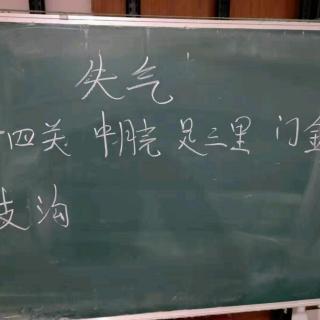 失气
四关 中脘 足三里 门金
支沟